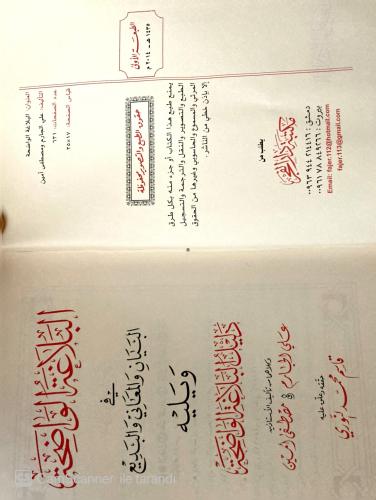 الطبعة الأولى
١٤٣٥ هـ - ٢٠١٤ م
العنوان: البلاغة الواضحة
التأليف: علي الجارم ومصطفى أمين
عدد الصفحات: ٦٣١
قياس الصفحة: ١٧×٢٥
حقوق الطبع والتصوير محفوظة
يمنع طبع هذا الكتاب أو جزء منه بكل طرق
الطبع والتصوير والنقل والترجمة والتسجيل
المرئي والمسموع والحاسوبي وغيرها من الحقوق
إلا بإذن خطي من الناشر.
يطلب من
مكتبة دار الفجر
دمشق: ٠٠٩٦٣ ٩٤٤ ٢١٤٤١٦
بيروت: ٠٠٩٦١ ٧٨ ٨٤٩٢٦٦
Email: fajer.112@hotmail.com
fajer.113@gmail.com
البلاغة الواضحة
في
البيان والمعاني والبديع
ويليه
دليل البلاغة الواضحة
وكلاهما من تأليف الأستاذين
علي الجارم و مصطفى أمين
حققه وعلق عليه
قاسم محمد النوري
CamScanner ile tarandı